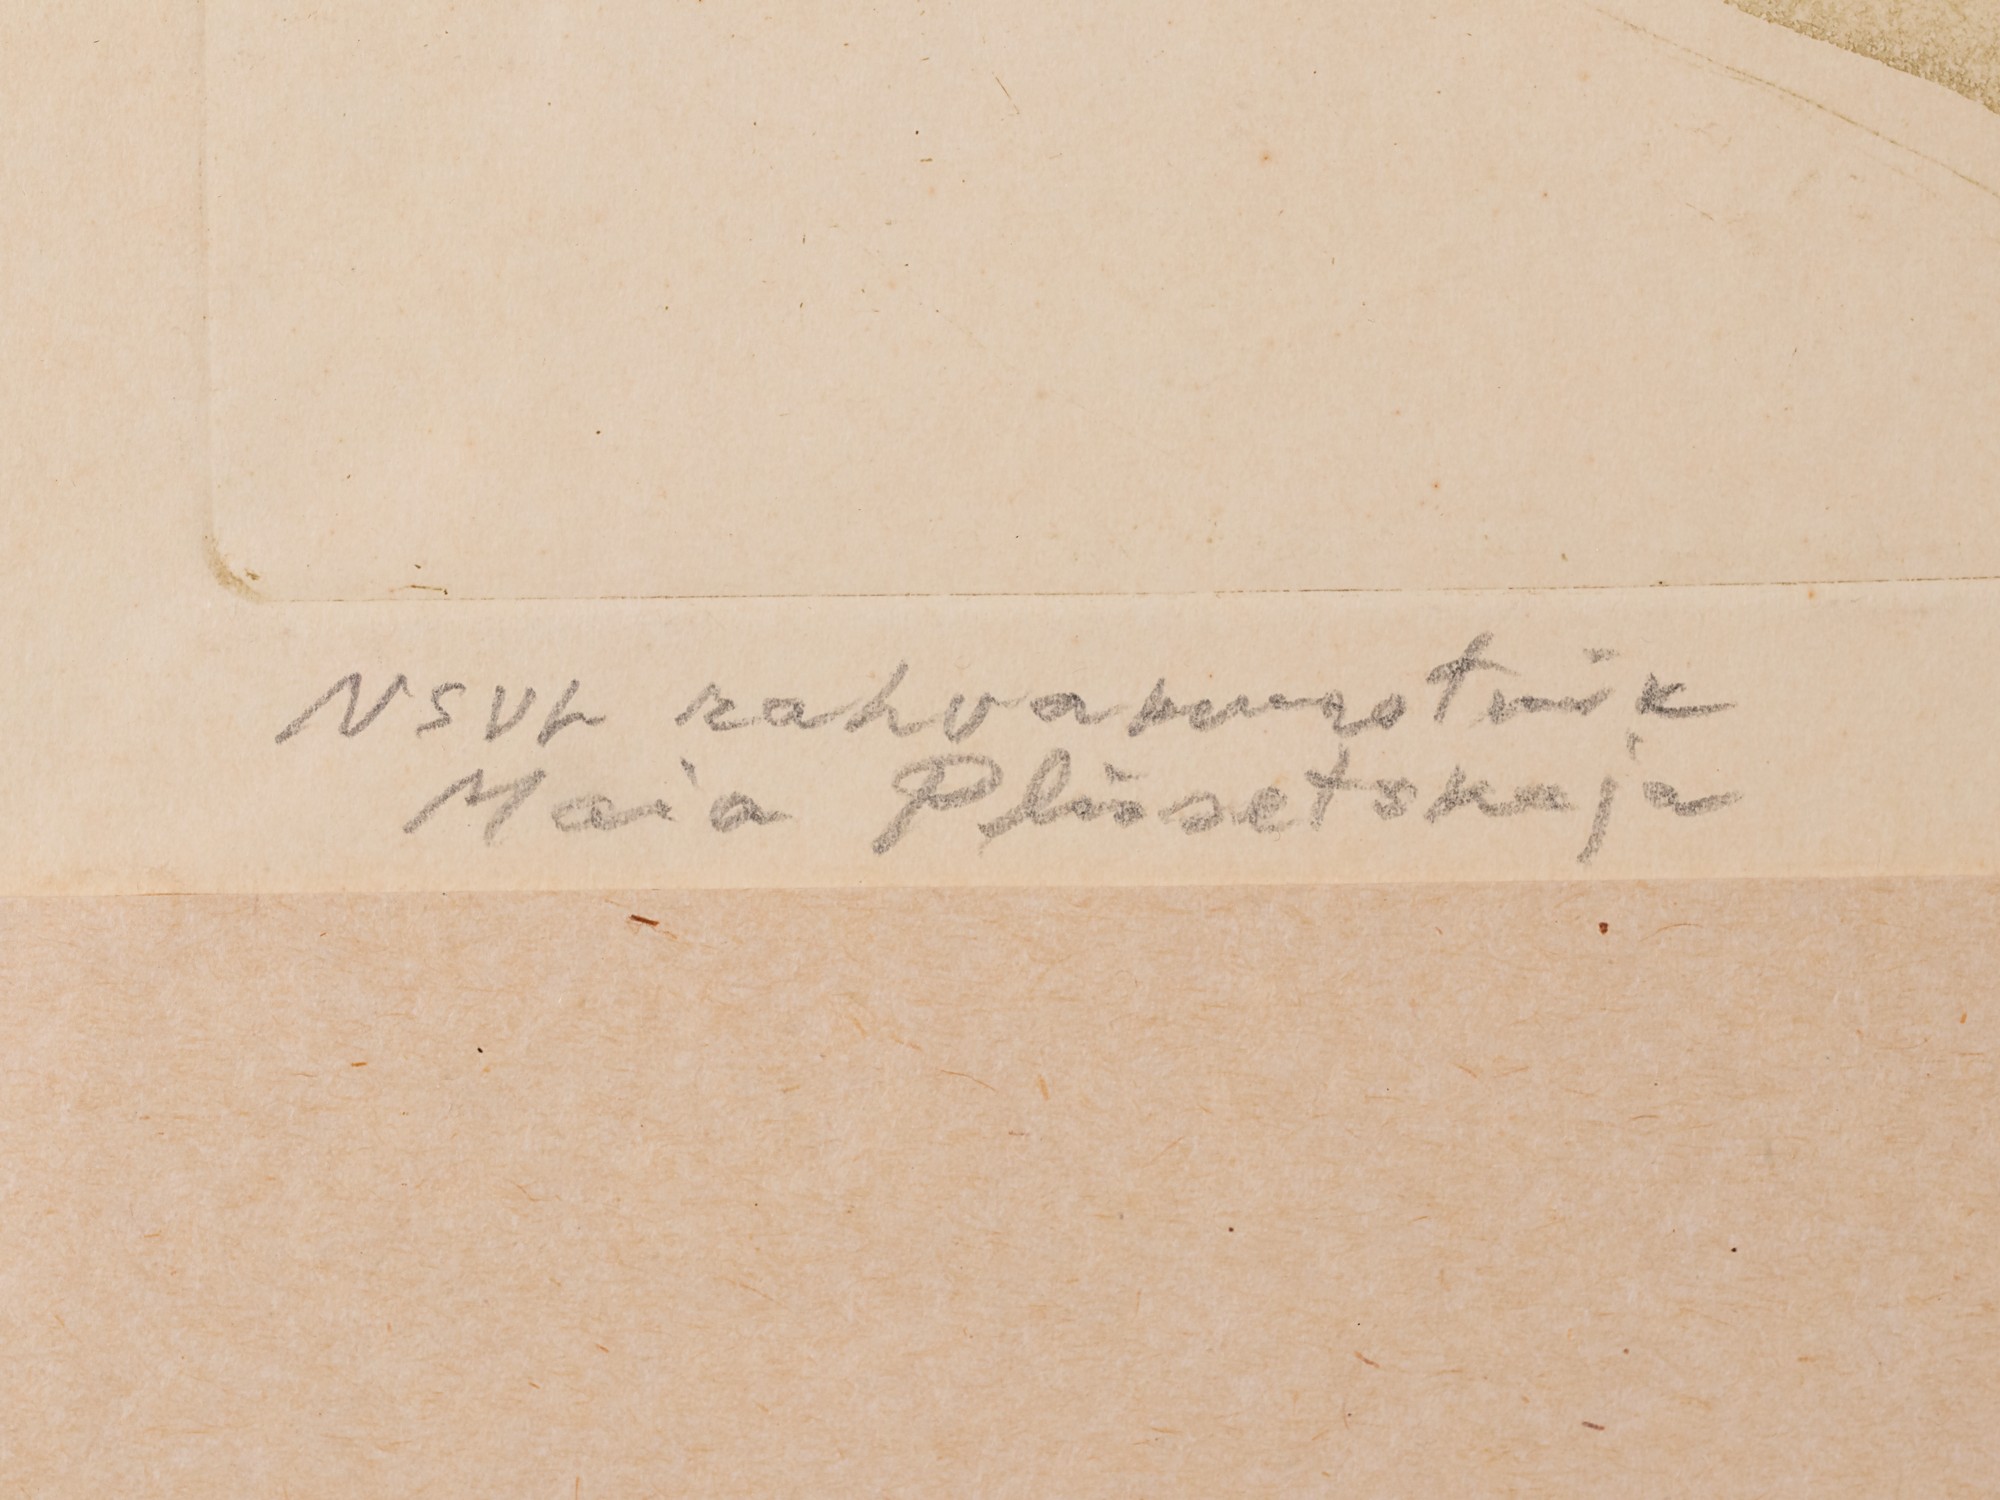 NSVL rahvakunstnik
Maia Plissetskaja